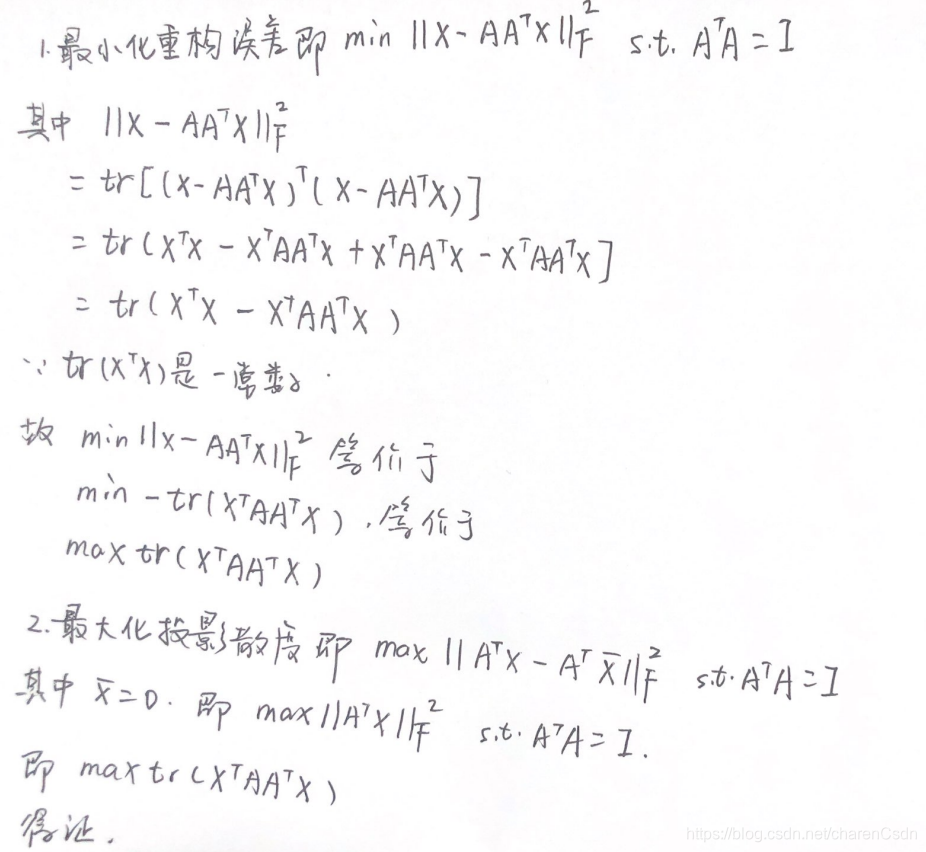 1.最小化重构误差即 min ||X - AAᵀX||²_F s.t. AᵀA = I
其中 ||X - AAᵀX||²_F
= tr[(X-AAᵀX)ᵀ(X-AAᵀX)]
= tr(XᵀX - XᵀAAᵀX + XᵀAAᵀX - XᵀAAᵀX]
= tr(XᵀX - XᵀAAᵀX)
∵ tr(XᵀX)是一常数.
故 min||X-AAᵀX||²_F 等价于
min -tr(XᵀAAᵀX),等价于
max tr(XᵀAAᵀX)
2.最大化投影散度即 max ||AᵀX - AᵀX̄||²_F s.t. AᵀA = I
其中 x̄=0. 即 max||AᵀX||²_F s.t. AᵀA = I.
即 max tr(XᵀAAᵀX)
得证.
https://blog.csdn.net/charenCsdn